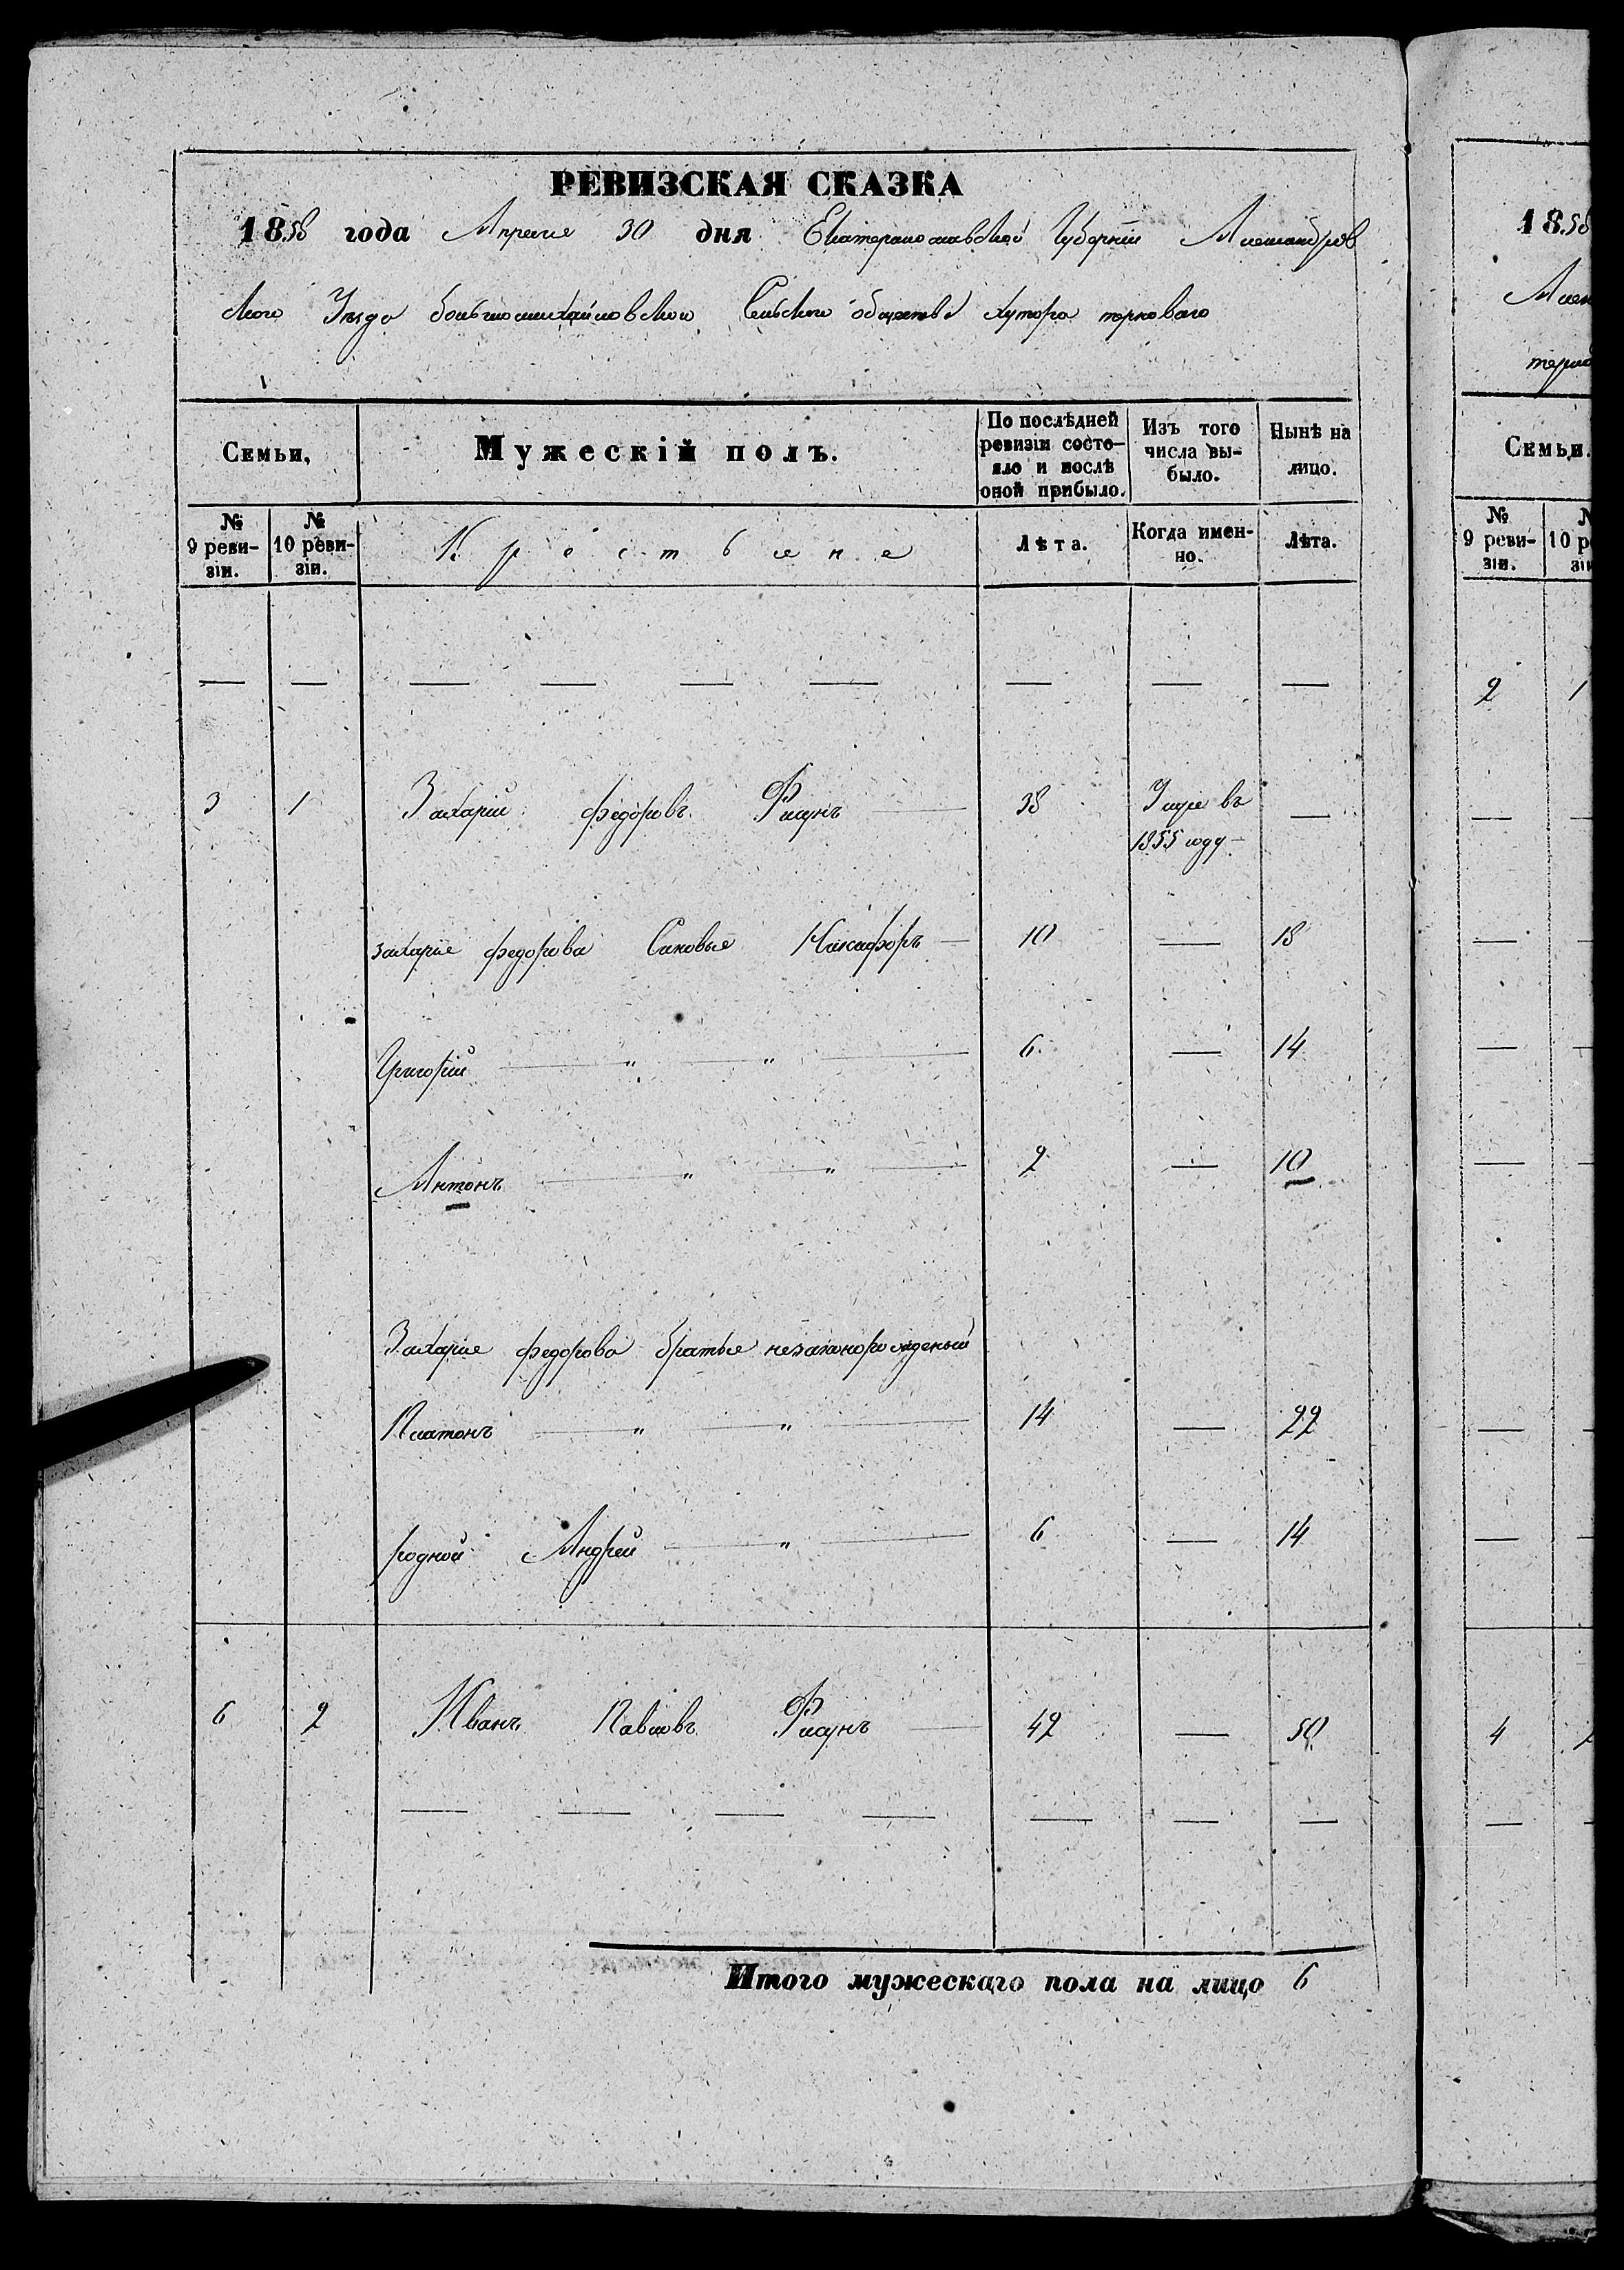 РЕВИЗСКАЯ СКАЗКА
1858 года Апреле 30 дня Екатеринославской Губернии Александров
ского Уезда большомихайловского Сельского общества хутора терноваго
Семьи, Мужескій полъ. По послѣдней ревизіи состояло и послѣ оной прибыло. Изъ того числа выбыло. Нынѣ на лицо.
№ 9 ревизіи. № 10 ревизіи. Крествяне Лѣта. Когда именно. Лѣта.
3 1 Захарій федоровъ 38 Умре въ
1855 году
захарие федорова Синовье Никифоръ 10 18
Григорій " " 6 14
Антонъ " " 2 10
Захарие федорова братье незаконорожденый
Платонъ " " 14 22
родной Андрей " 6 14
6 2 Иванъ Павловъ 42 50
Итого мужескаго пола на лицо 6
1858
Семьи.
№ 9 ревизіи.
2 1
4